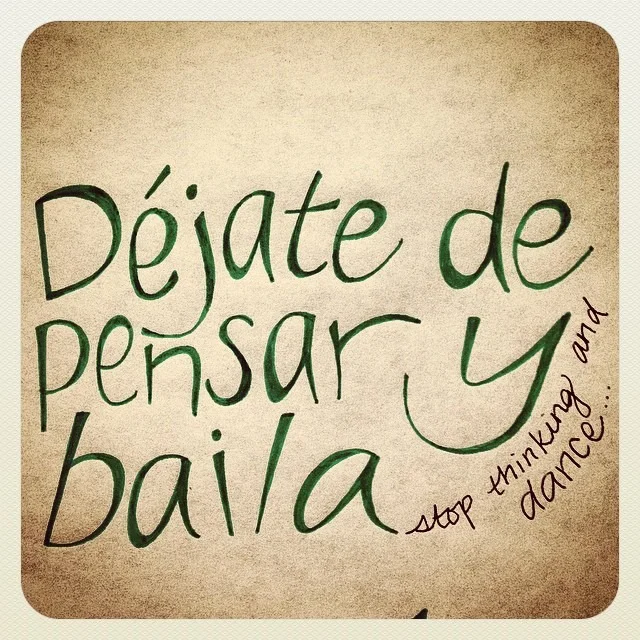 Déjate de
pensar y
baila
stop thinking and
dance...